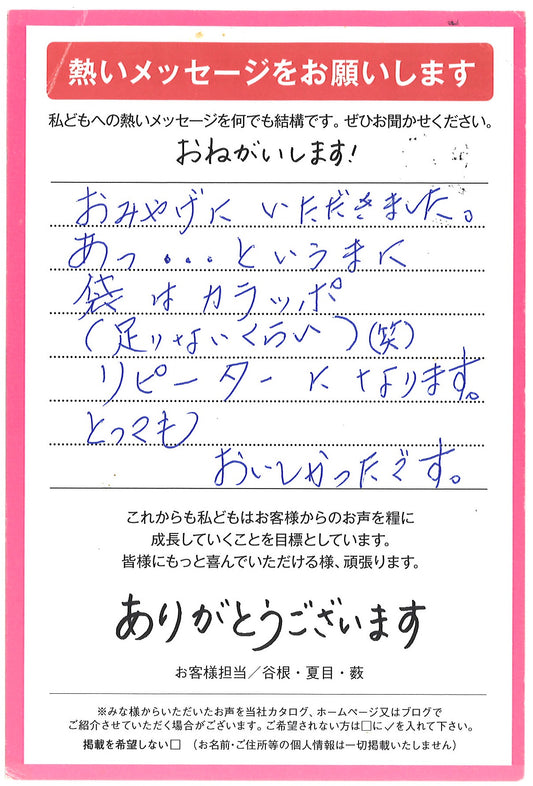 熱いメッセージをお願いします
私どもへの熱いメッセージを何でも結構です。ぜひお聞かせください。
おねがいします!
おみやげに いただきました。
あっ...というまに
袋はカラッポ
(足りないくらい)(笑)
リピーターになります。
とっても
おいしかったです。
これからも私どもはお客様からのお声を糧に
成長していくことを目標としています。
皆様にもっと喜んでいただける様、頑張ります。
ありがとうございます
お客様担当/谷根・夏目・薮
※みな様からいただいたお声を当社カタログ、ホームページ又はブログで
ご紹介させていただく場合がございます。ご希望されない方は□に✓を入れて下さい。
掲載を希望しない□ (お名前・ご住所等の個人情報は一切掲載いたしません)